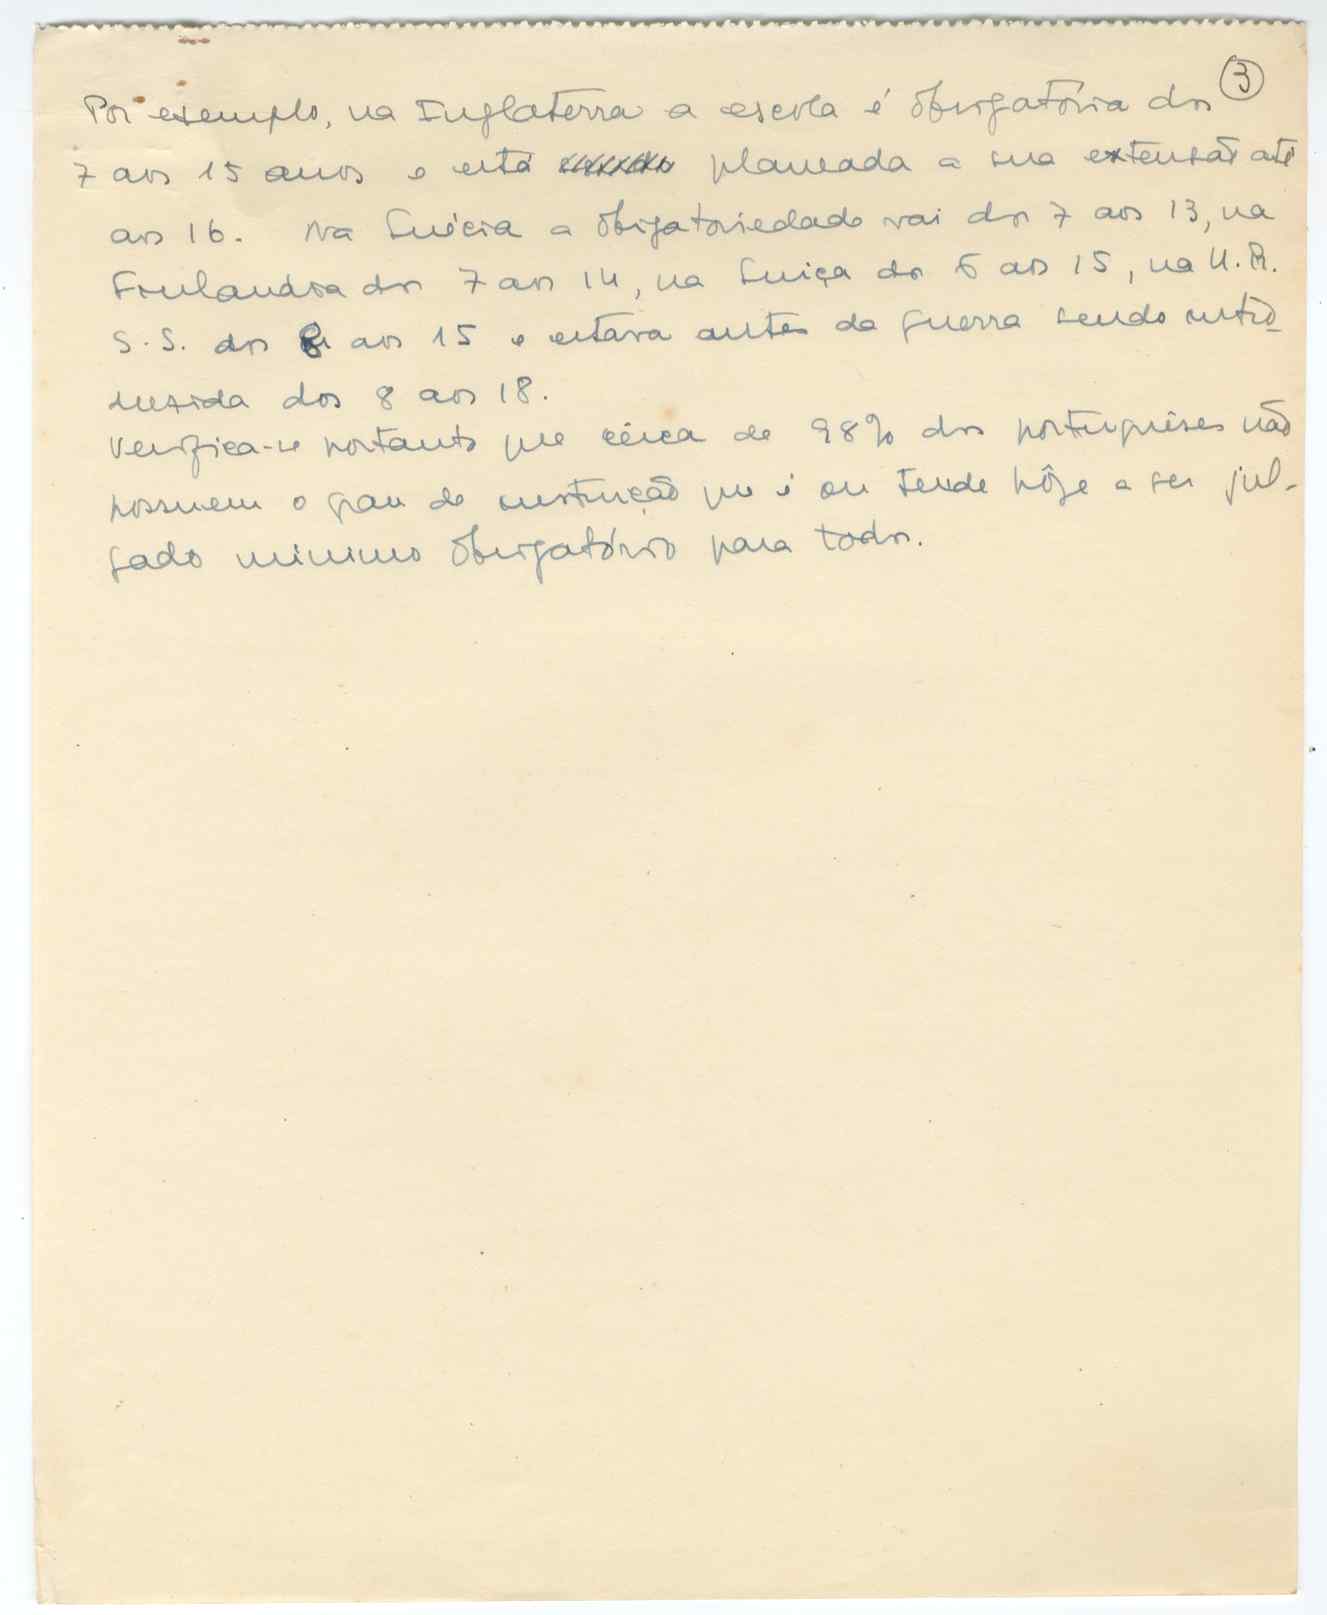 3
Por exemplo, na Inglaterra a escola é obrigatória dos
7 aos 15 anos e está planeada a sua extensão até
aos 16. Na Suécia a obrigatoriedade vai dos 7 aos 13, na
Finlandia dos 7 aos 14, na Suiça dos 6 aos 15, na U.R.
S.S. dos 8 aos 15 e estava antes da guerra sendo intro-
duzida dos 8 aos 18.
Verifica-se portanto que cêrca de 98% dos portuguêses não
possuem o grau de instrução que é ou tende hôje a ser jul-
gado minimo obrigatório para todos.